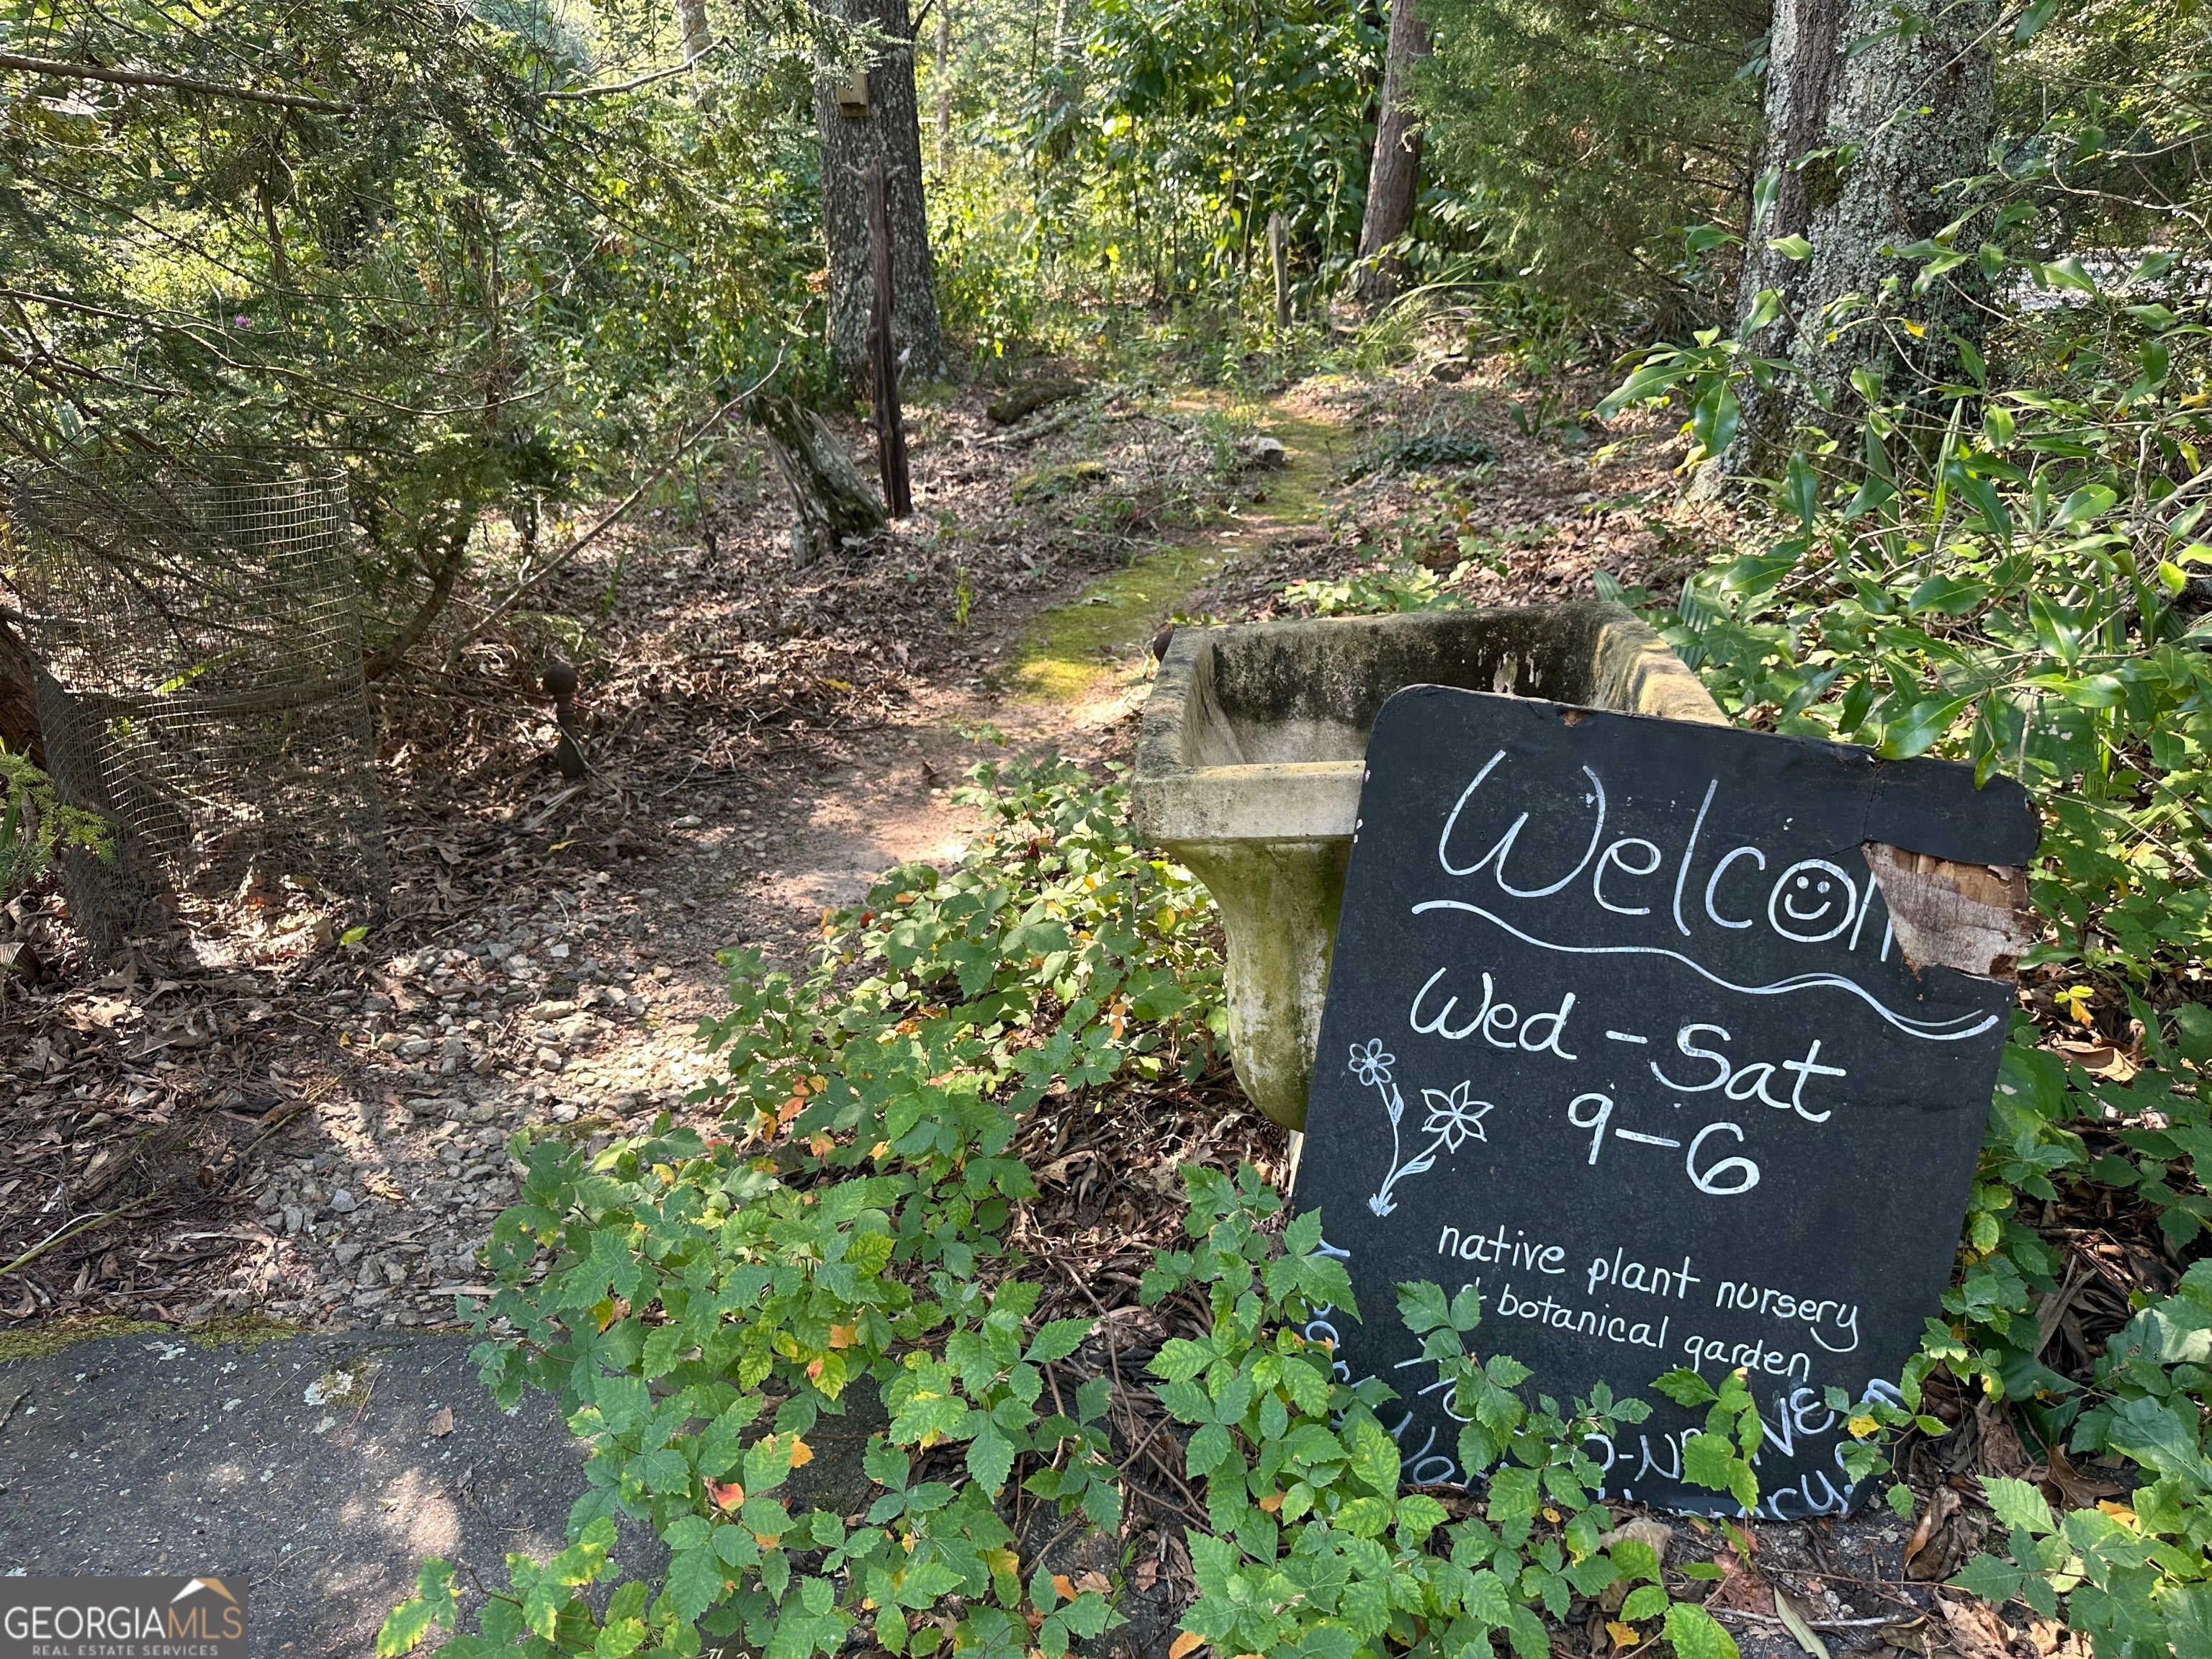 Welcom
Wed - Sat
9-6
native plant nursery
& botanical garden
GEORGIAMLS
REAL ESTATE SERVICES